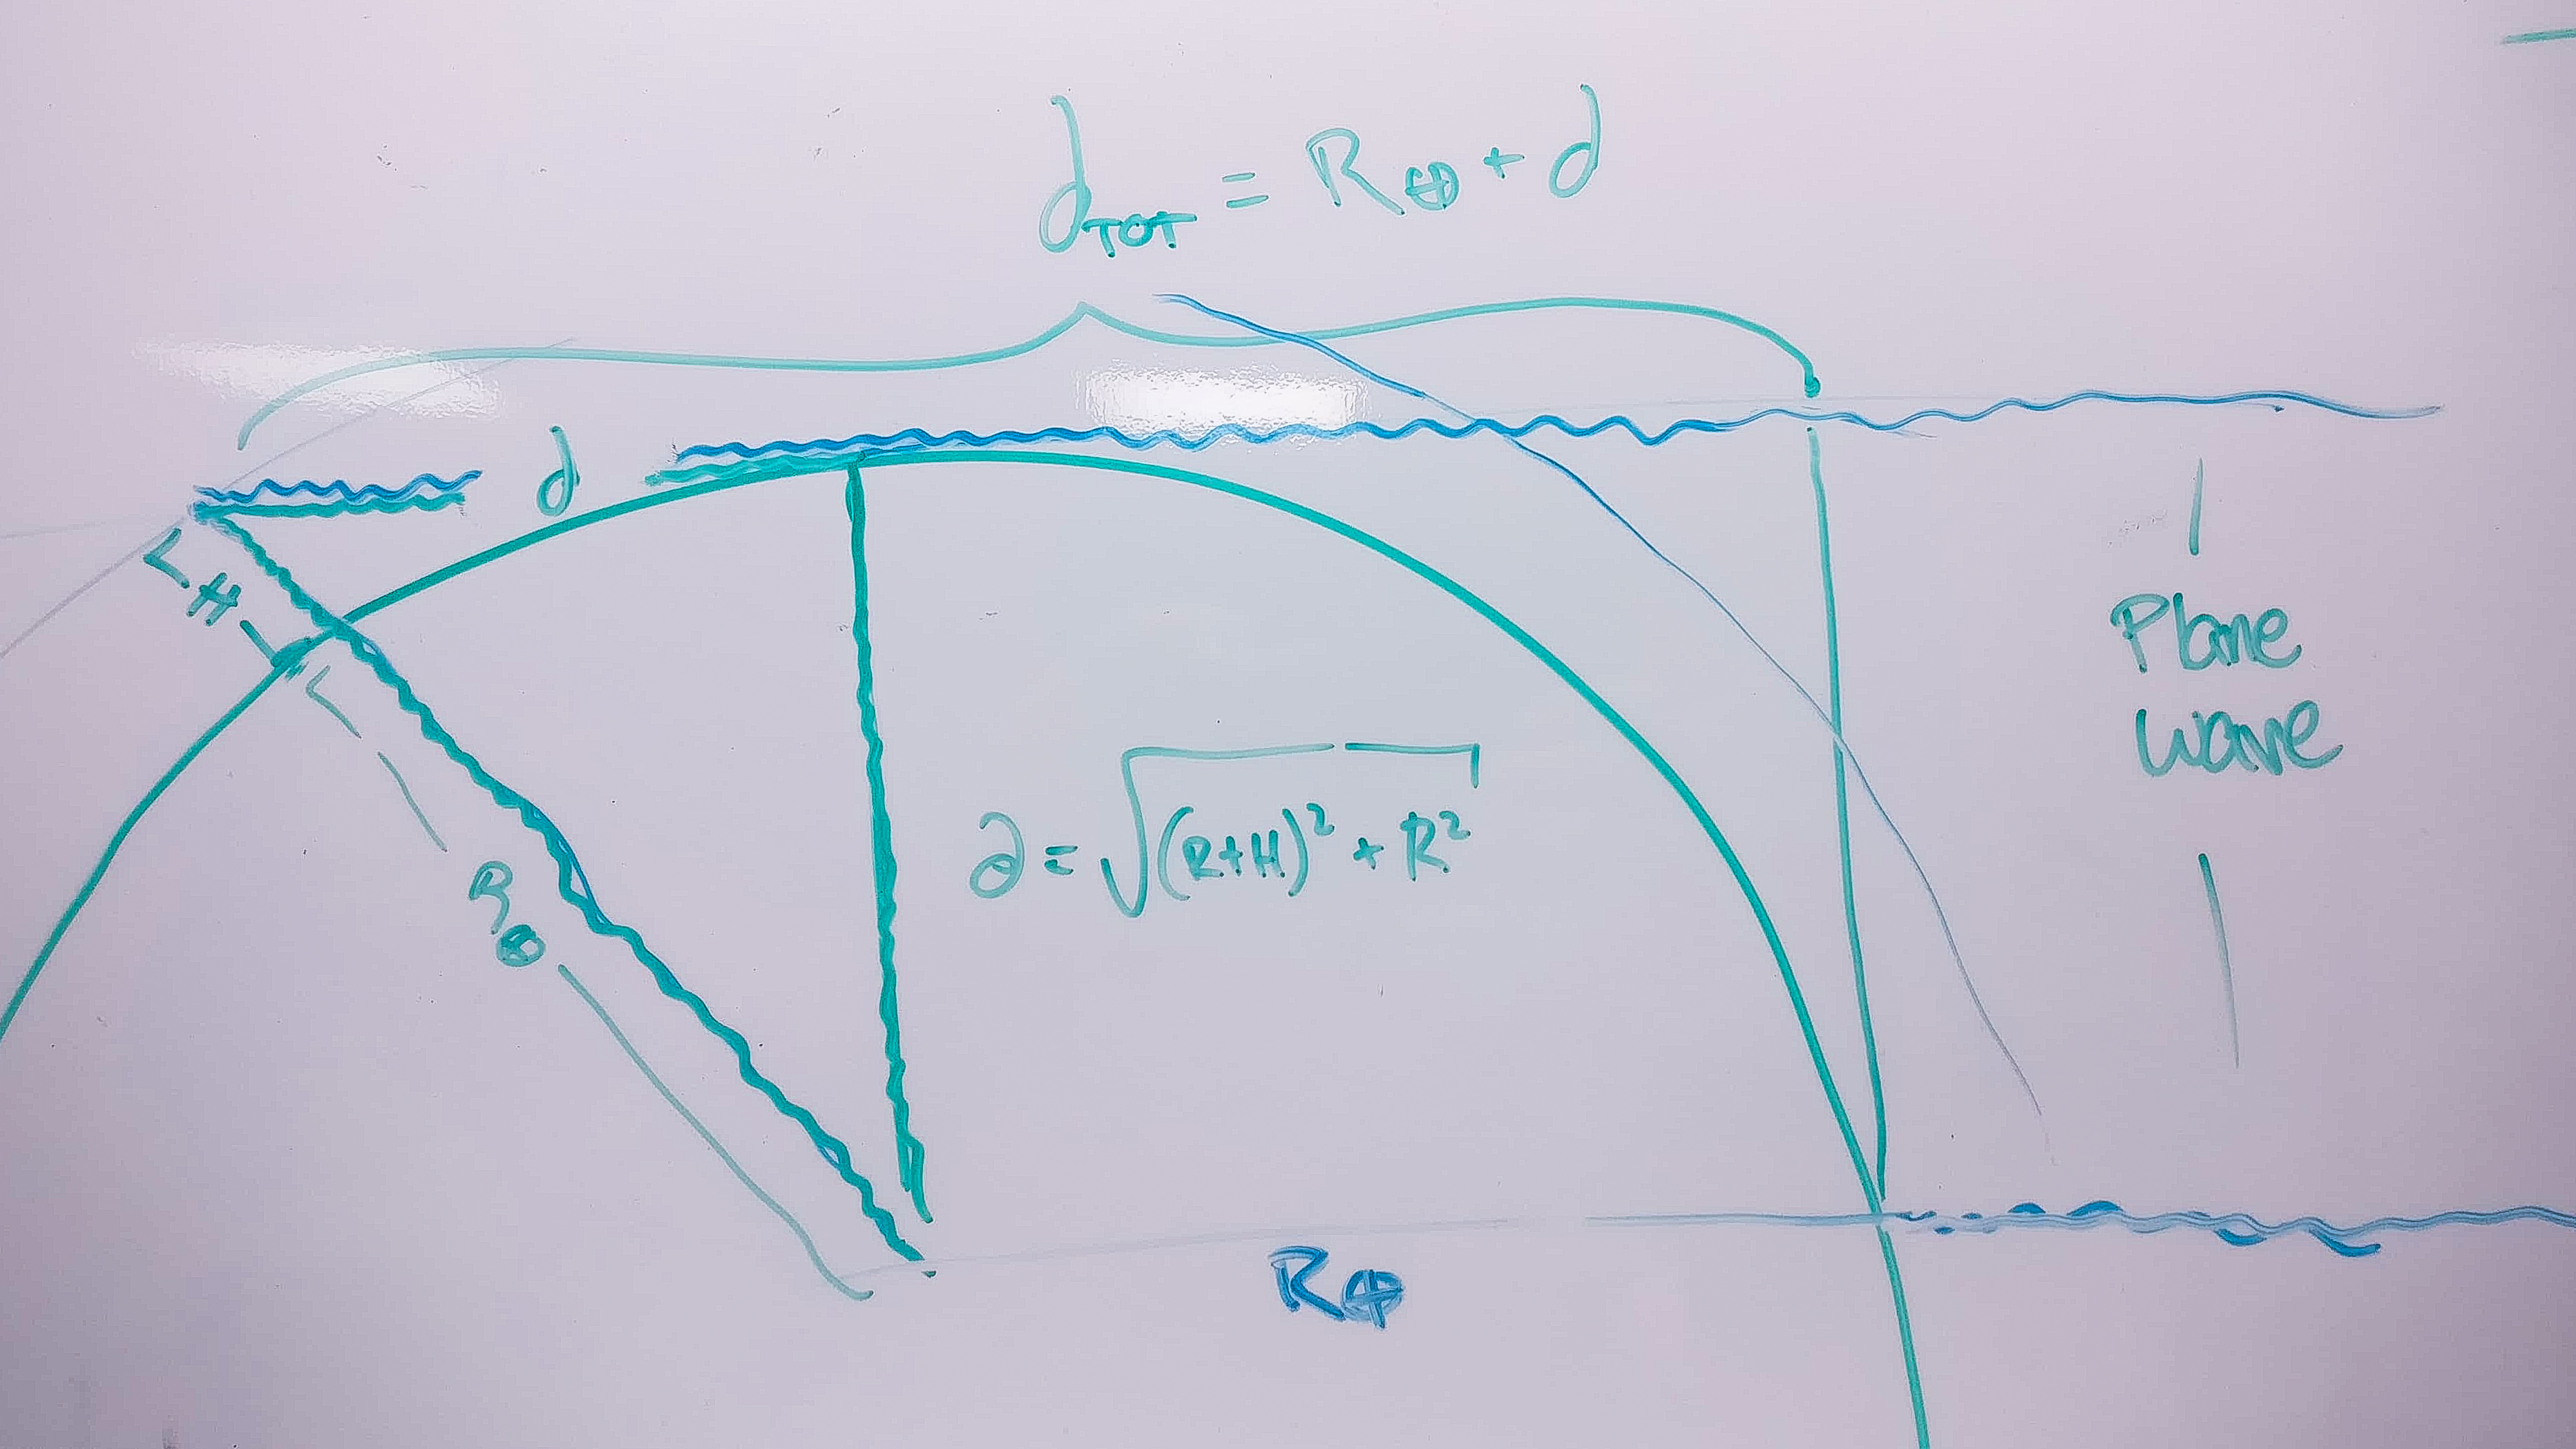 d_TOT = R⊕ + d
d
H
R⊕
∂ = √(R+H)² + R²
Plane
wave
R⊕